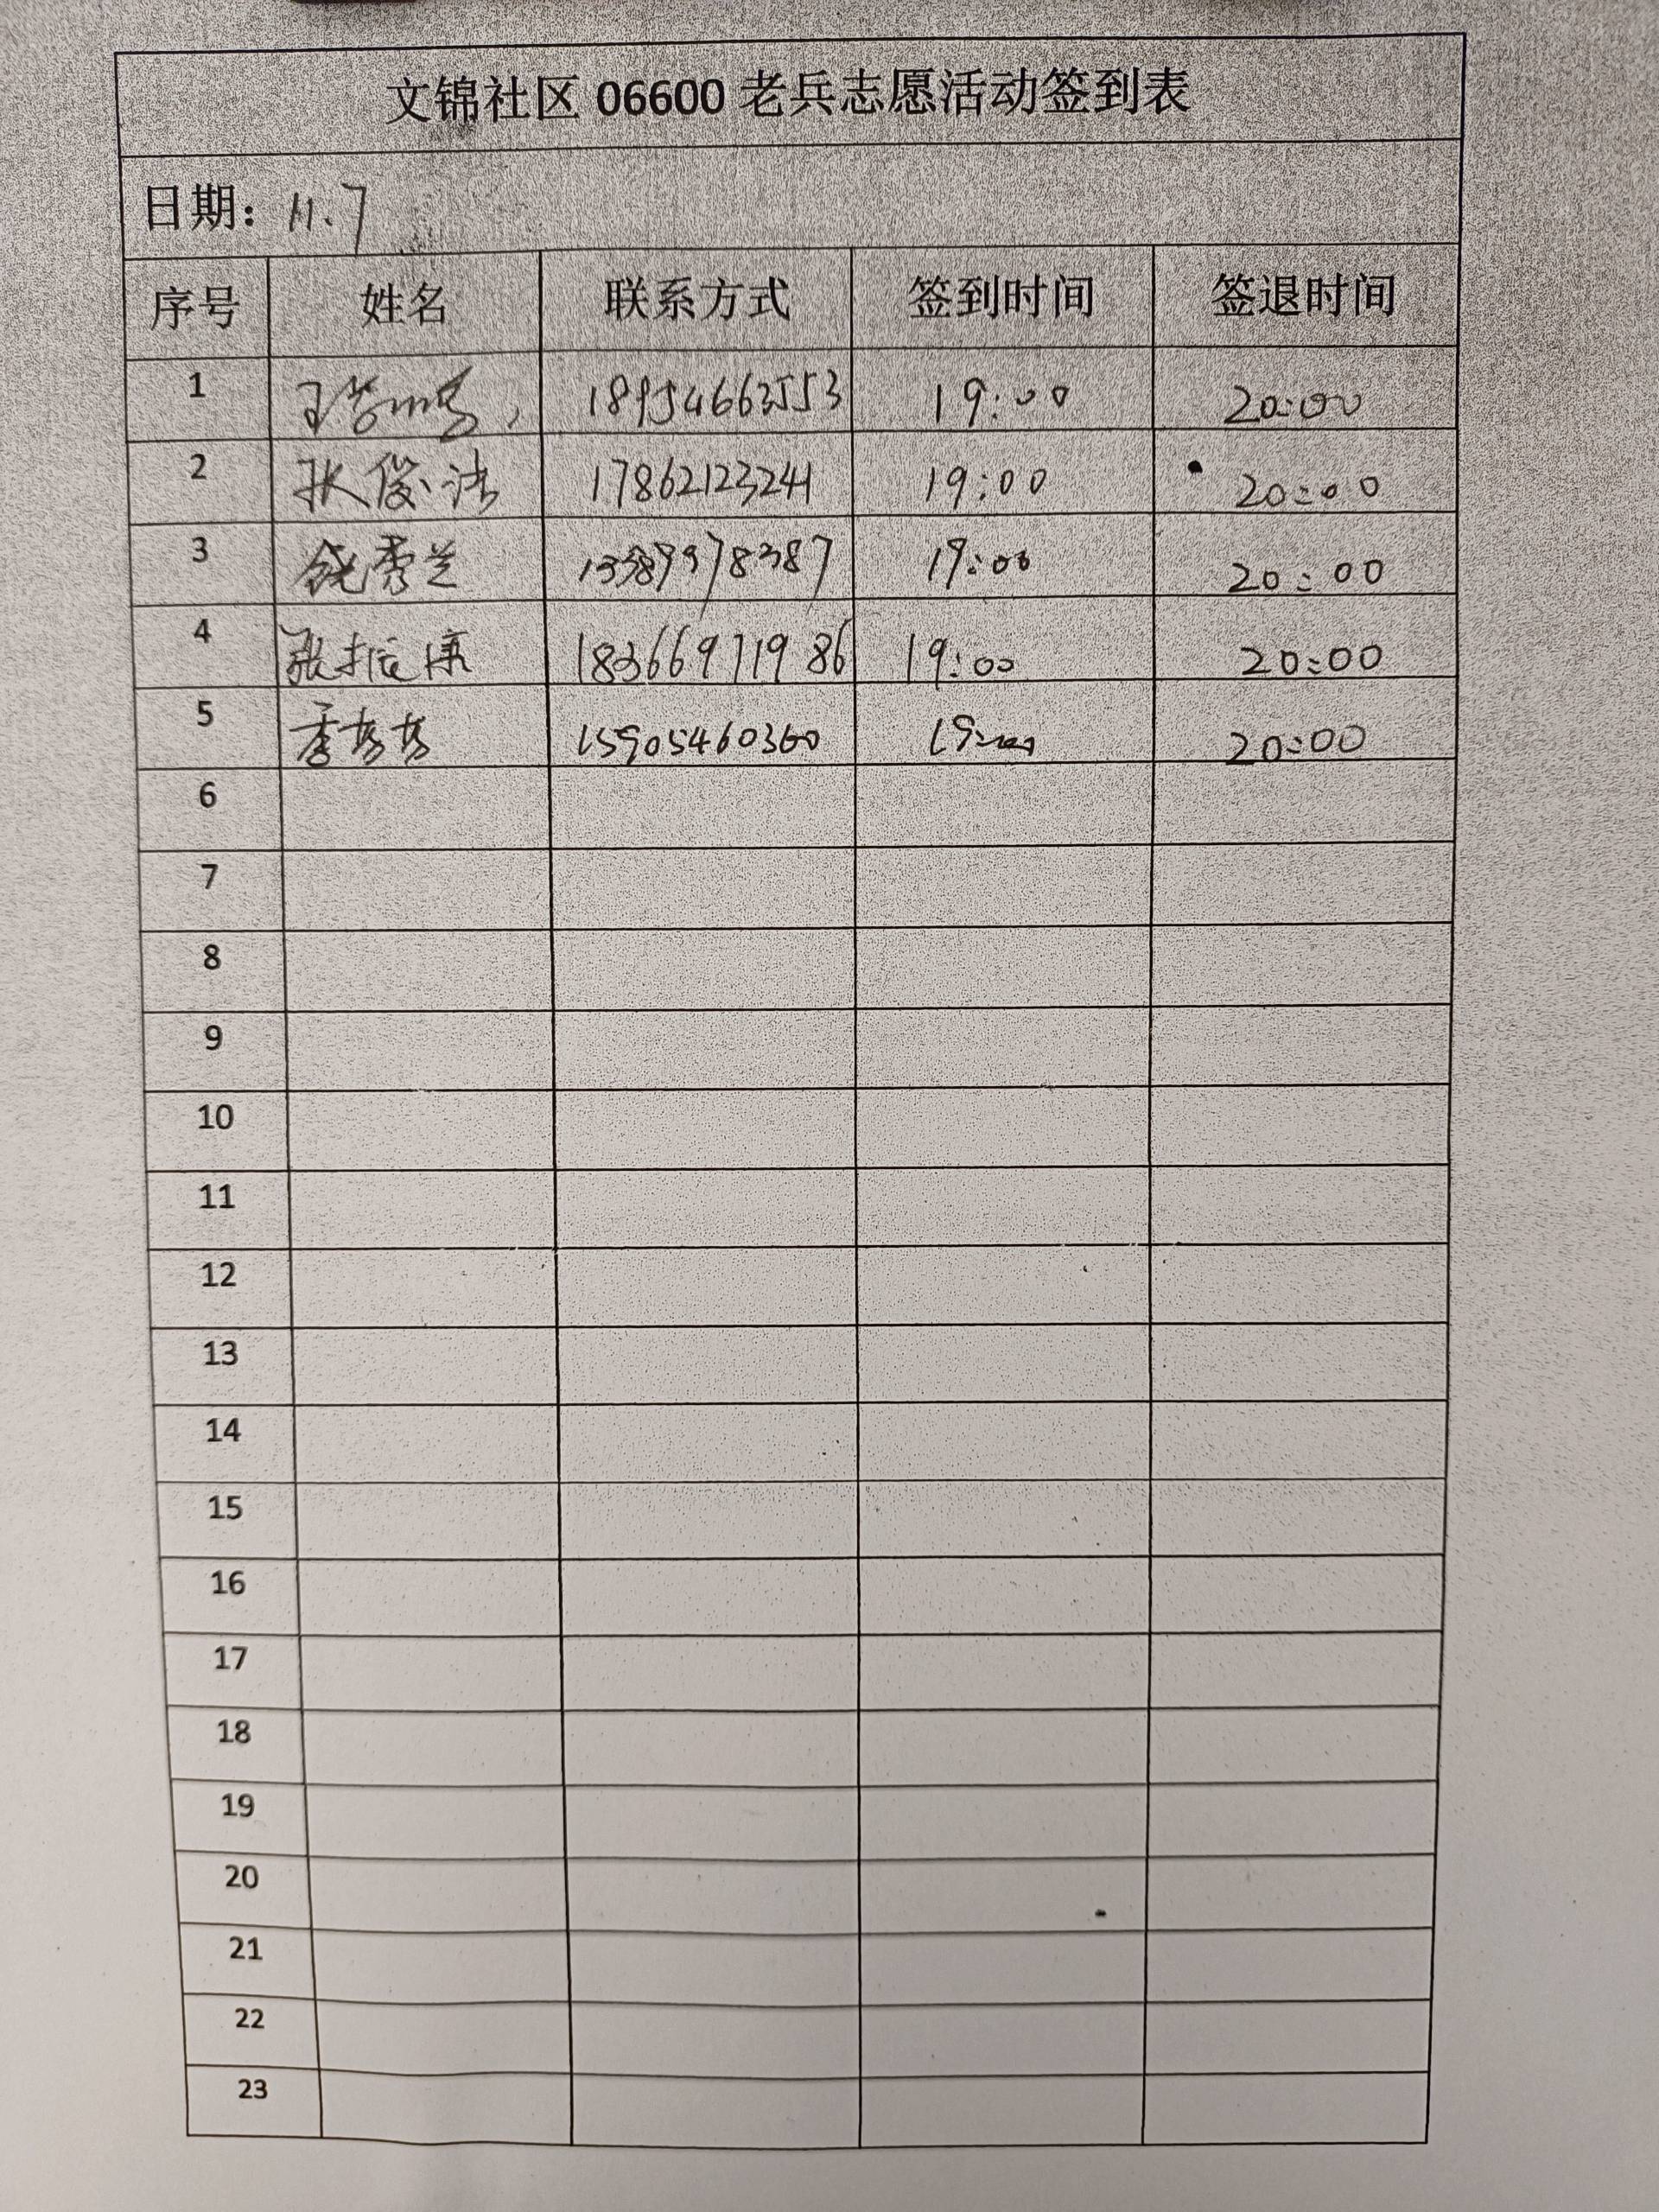 文锦社区 06600 老兵志愿活动签到表
日期: 11.7
序号 姓名 联系方式 签到时间 签退时间
1 18954663553 19:00 20:00
2 张俊法 17862123241 19:00 20:00
3 饶秀兰 13389978387 19:00 20:00
4 张振康 18366971986 19:00 20:00
5 李芬芬 15905460360 19:00 20:00
6
7
8
9
10
11
12
13
14
15
16
17
18
19
20
21
22
23